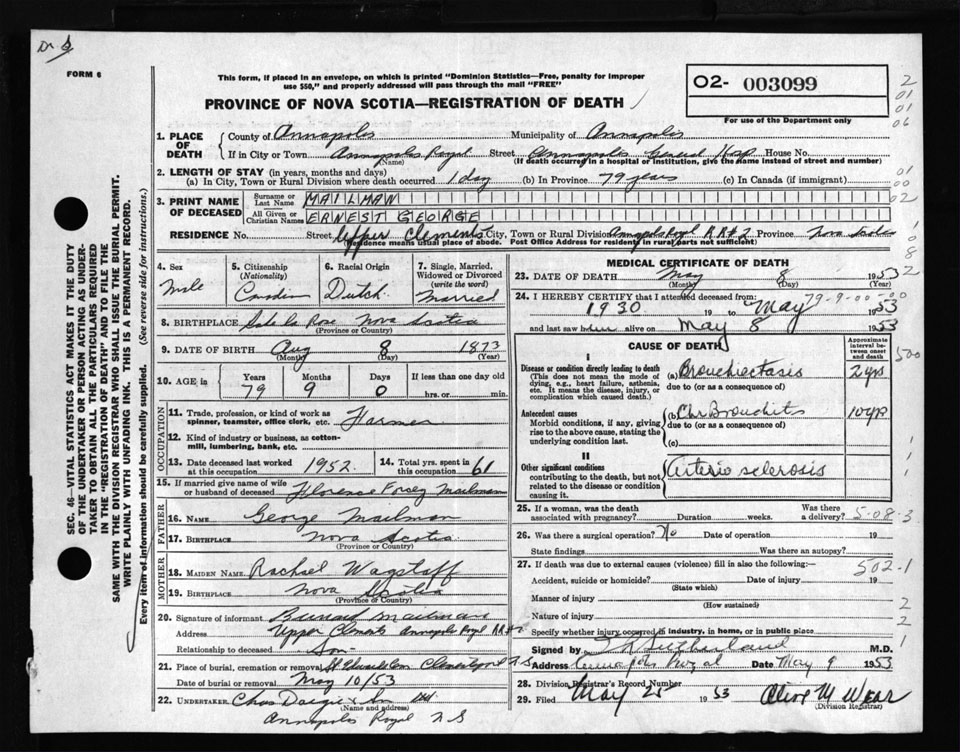 FORM 6
This form, if placed in an envelope, on which is printed "Dominion Statistics—Free, penalty for improper
use $50," and properly addressed will pass through the mail "FREE"
O2- 003099
For use of the Department only
PROVINCE OF NOVA SCOTIA—REGISTRATION OF DEATH
1. PLACE OF DEATH
County of Annapolis Municipality of Annapolis
If in City or Town Annapolis Royal Street Annapolis General Hosp House No.
(Name) (If death occurred in a hospital or institution, give the name instead of street and number)
2. LENGTH OF STAY (in years, months and days)
(a) In City, Town or Rural Division where death occurred 1 day (b) In Province 79 years (c) In Canada (if immigrant)
3. PRINT NAME OF DECEASED
Surname or Last Name MAILMAN
All Given or Christian Names ERNEST GEORGE
RESIDENCE No. Street Upper Clements City, Town or Rural Division Annapolis Royal RR#2 Province Nova Scotia
Residence means usual place of abode. Post Office Address for residents in rural parts not sufficient)
4. Sex Male
5. Citizenship (Nationality) Canadian
6. Racial Origin Dutch
7. Single, Married, Widowed or Divorced (write the word) Married
8. BIRTHPLACE Nova Scotia
(Province or Country)
9. DATE OF BIRTH Aug 8 1873
(Month) (Day) (Year)
10. AGE in Years 79 Months 9 Days 0 If less than one day old hrs. or min.
OCCUPATION
11. Trade, profession, or kind of work as spinner, teamster, office clerk, etc. Farmer
12. Kind of industry or business, as cotton-mill, lumbering, bank, etc.
13. Date deceased last worked at this occupation 1952
14. Total yrs. spent in this occupation 61
15. If married give name of wife or husband of deceased Florence Forcey Mailman
FATHER
16. NAME George Mailman
17. BIRTHPLACE Nova Scotia
(Province or Country)
MOTHER
18. MAIDEN NAME Rachael Wagstaff
19. BIRTHPLACE Nova Scotia
(Province or Country)
20. Signature of informant Mailman
Address Upper Clements Annapolis Royal RR#2
Relationship to deceased Son
21. Place of burial, cremation or removal St Edwards Cem Clementsport N.S
Date of burial or removal May 10/53
22. UNDERTAKER Chas Dargie & Son Ltd
(Name and address)
Annapolis Royal N S
MEDICAL CERTIFICATE OF DEATH
23. DATE OF DEATH May 8 1953
(Month) (Day)
24. I HEREBY CERTIFY that I attended deceased from:
1930 19 to May 1953
79-9-00-00
and last saw him alive on May 8 1953
CAUSE OF DEATH
Approximate interval between onset and death
I
Disease or condition directly leading to death
(This does not mean the mode of dying, e.g., heart failure, asthenia, etc. It means the disease, injury, or complication which caused death.)
(a) Bronchiectasis 2 yrs
due to (or as a consequence of)
Antecedent causes
Morbid conditions, if any, giving rise to the above cause, stating the underlying condition last.
(b) Chr Bronchitis 10 yrs
due to (or as a consequence of)
(c)
II
Other significant conditions
contributing to the death, but not related to the disease or condition causing it.
Arterio sclerosis
25. If a woman, was the death associated with pregnancy? Duration weeks. Was there a delivery?
5-08-3
26. Was there a surgical operation? No Date of operation 19
State findings Was there an autopsy?
27. If death was due to external causes (violence) fill in also the following:
502-1
Accident, suicide or homicide? Date of injury 19
(State which)
Manner of injury
(How sustained)
Nature of injury
Specify whether injury occurred in industry, in home, or in public place
Signed by Sutherland M.D.
Address Annapolis Royal Date May 9 1953
28. Division Registrar's Record Number
29. Filed May 25 1953 Olive M Wear
(Division Registrar)
SEC. 46—VITAL STATISTICS ACT MAKES IT THE DUTY
OF THE UNDERTAKER OR PERSON ACTING AS UNDER-
TAKER TO OBTAIN ALL THE PARTICULARS REQUIRED
IN THE "REGISTRATION OF DEATH" AND TO FILE THE
SAME WITH THE DIVISION REGISTRAR WHO SHALL ISSUE THE BURIAL PERMIT.
WRITE PLAINLY WITH UNFADING INK. THIS IS A PERMANENT RECORD.
Every item of information should be carefully supplied. (See reverse side for instructions.)
2
01
01
06
01
00
02
1
0
8
2
500
1
1
1
2
2